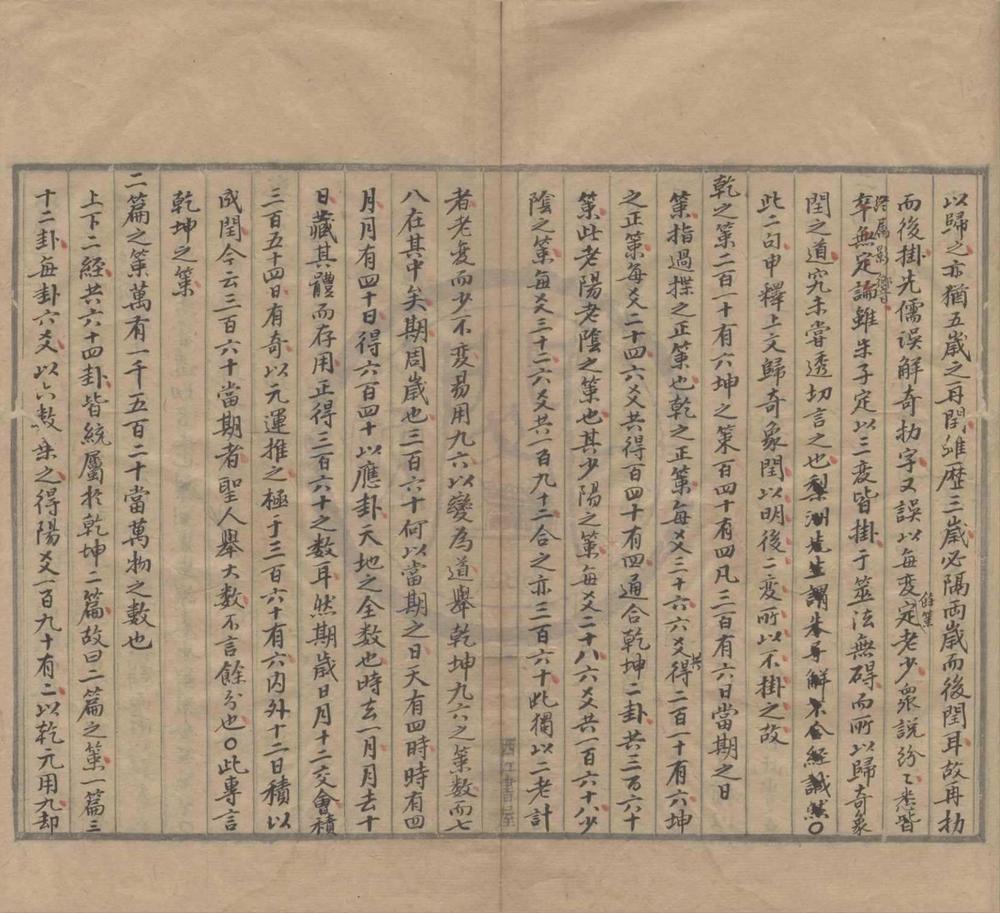 以歸之亦猶五歲之再閏雖歷三歲必隔兩歲而後閏耳故再扐
而後掛先儒誤解奇扐字又誤以每變餘策定老少衆說紛々悉皆
卒無定論雖朱子定以三變皆掛于筮法無碍而所以歸奇象
終屬影響
閏之道究未嘗透切言之也梨洲先生謂朱㝷解不合經誠然〇
此二句申釋上文歸奇象閏以明後二變所以不掛之故
乾之策二百一十有六坤之策百四十有四凡三百有六日當期之日
策指過揲之正策也乾之正策每爻三十六六爻共得二百一十有六坤
之正策每爻二十四六爻共得百四十有四通合乾坤二卦共三百六十
策此老陽老陰之策也其少陽之策每爻二十八六爻共一百六十八少
陰之策每爻三十二六爻共一百九十二合之亦三百六十此獨以二老計
者老變而少不變易用九六以變為道舉乾坤九六之策數而七
八在其中矣期周歲也三百六十何以當期之日天有四時時有四
月月有四十日得六百四十以應卦天地之全数也時去一月月去十
日藏其體而存用正得三百六十之数耳然期歲日月十二交會積
三百五十四日有奇以元運推之極于三百六十有六内外十二日積以
成閏今云三百六十當期者聖人舉大数不言餘分也〇此專言
乾坤之策
二篇之策萬有一千五百二十當萬物之數也
上下二經共六十四卦皆統屬扵乾坤二篇故曰二篇之策一篇三
十二卦每卦六爻以六数乗之得陽爻一百九十有二以乾元用九却
西江書屋